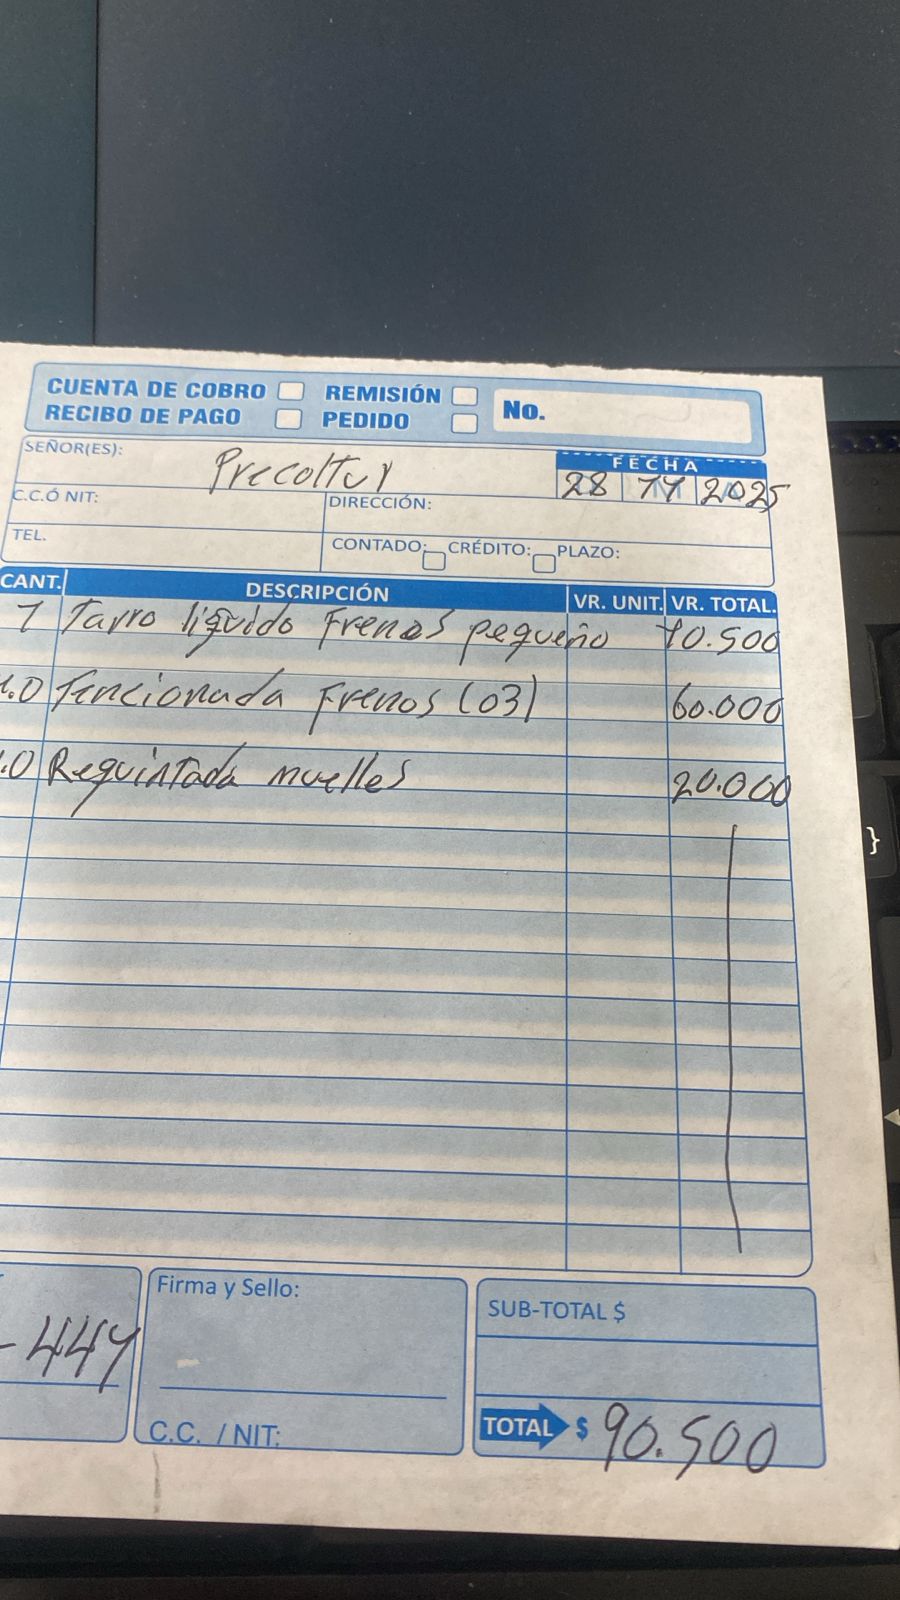 CUENTA DE COBRO REMISIÓN No.
RECIBO DE PAGO PEDIDO
SEÑOR(ES): Precoltur FECHA
28 11 2025
C.C.Ó NIT: DIRECCIÓN:
TEL. CONTADO: CRÉDITO: PLAZO:
CANT. DESCRIPCIÓN VR. UNIT. VR. TOTAL.
1 Tarro liquido Frenos pequeño 10.500
.0 Tencionada Frenos (03) 60.000
.0 Requintada muelles 20.000
Firma y Sello:
SUB-TOTAL $
C.C. / NIT:
TOTAL $ 90.500
}